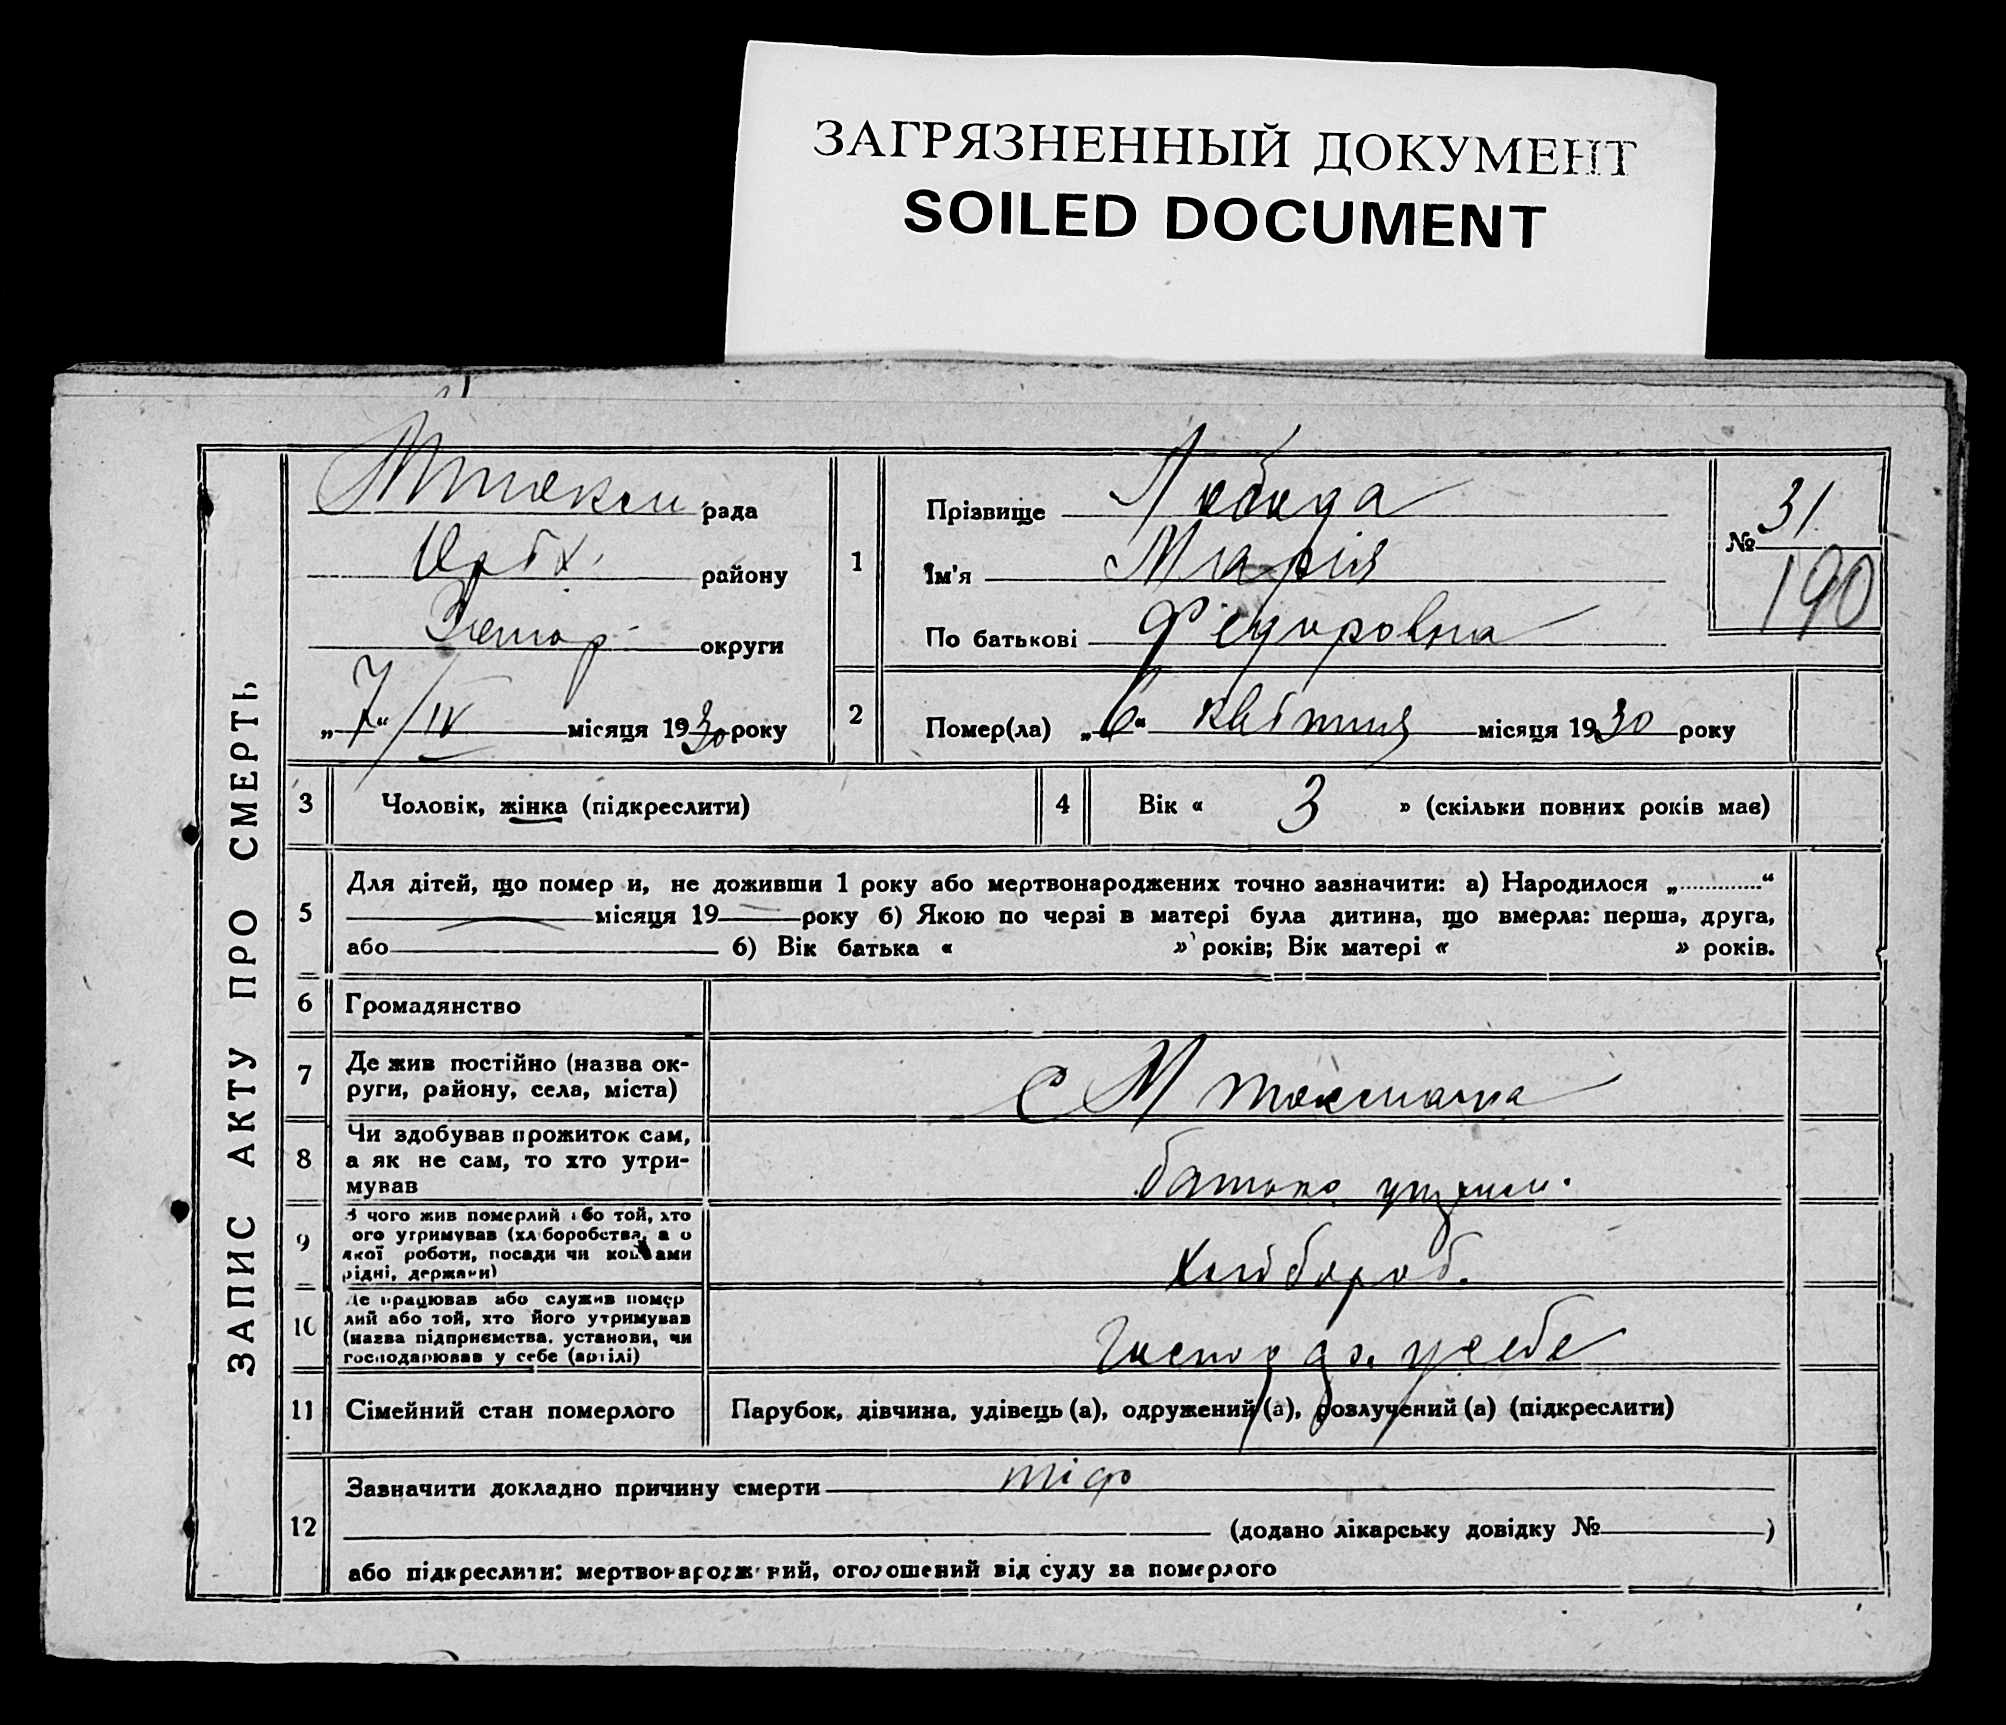 ЗАГРЯЗНЕННЫЙ ДОКУМЕНТ
SOILED DOCUMENT
ЗАПИС АКТУ ПРО СМЕРТЬ
рада
району
округи
„7“/IV місяця 1930 року
1
Прізвище Лобода
Ім'я Марія
По батькові Федоровна
№ 31
190
2
Помер(ла) „6“ квітня місяця 1930 року
3 Чоловік, жінка (підкреслити)
4 Вік « 3 » (скільки повних років має)
5
Для дітей, що помер и, не доживши 1 року або мертвонароджених точно зазначити: а) Народилося „.............“
місяця 19 року б) Якою по черзі в матері була дитина, що вмерла: перша, друга,
або 6) Вік батька « » років; Вік матері « » років.
6 Громадянство
7
Де жив постійно (назва ок-
руги, району, села, міста)
с
8
Чи здобував прожиток сам,
а як не сам, то хто утри-
мував
батько
9
З чого жив померлий або той, хто
ого утримував (хл боробства, а о
якої роботи, посади чи коштами
рідні, держави)
Хлібороб.
10
Де працював або служив помер
лий або той, хто його утримував
(назва підприємства, установи, чи
господарював у себе (артілі)
Господар. у себе
11 Сімейний стан померлого
Парубок, дівчина, удівець (а), одружений (а), розлучений (а) (підкреслити)
12
Зазначити докладно причину смерти тіф
(додано лікарську довідку № )
або підкреслити: мертвонароджений, оголошений від суду за померлого